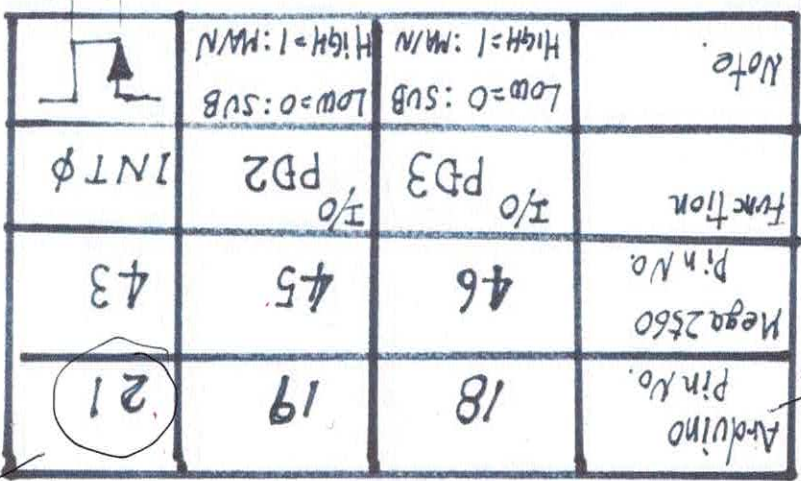 Arduino
Pin No.
18
19
21
Mega2560
Pin No.
46
45
43
Function
I/O
PD3
I/O
PD2
INTφ
Note.
Low=0 : SUB
HIGH=1 : MAIN
Low=0 : SUB
HIGH=1 : MAIN